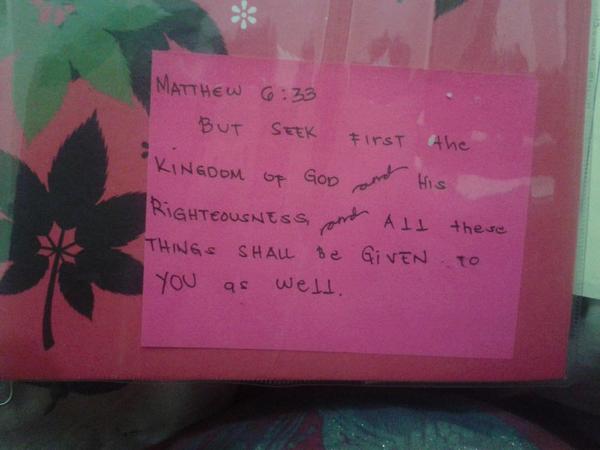 MATTHEW 6:33
BUT SEEK FIRST the
KINGDOM OF GOD and HIS
RIGHTEOUSNESS, and All these
THINGS SHALL Be GIVEN TO
YOU as well.